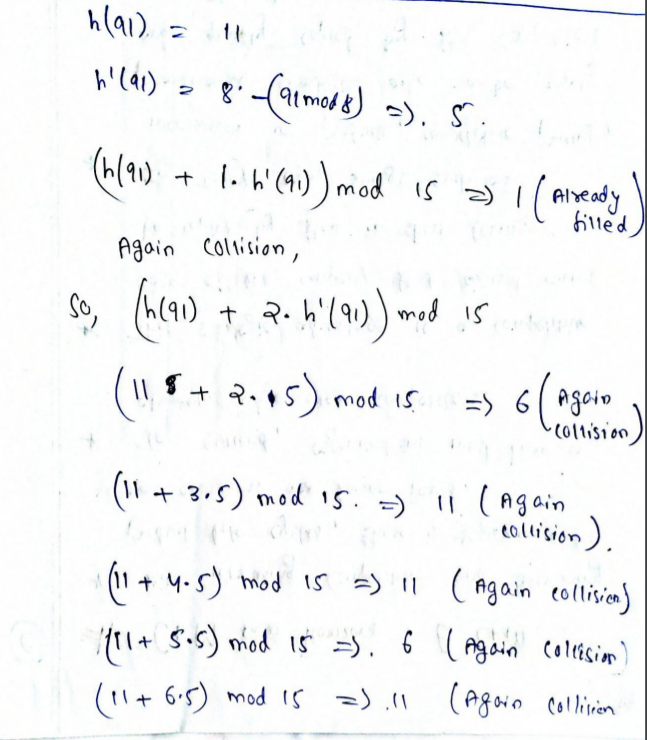 h(91) = 11
h'(91) = 8 - (91 mod 8) => . 5.
(h(91) + 1. h'(91)) mod 15 => 1 (Already filled)
Again collision,
So, (h(91) + 2. h'(91)) mod 15
(11 + 2. 5) mod 15 => 6 (Again collision)
(11 + 3.5) mod 15. => 11 (Again collision).
(11 + 4.5) mod 15 => 11 (Again collision)
(11 + 5.5) mod 15 =>. 6 (Again collision)
(11 + 6.5) mod 15 => .11 (Again collision